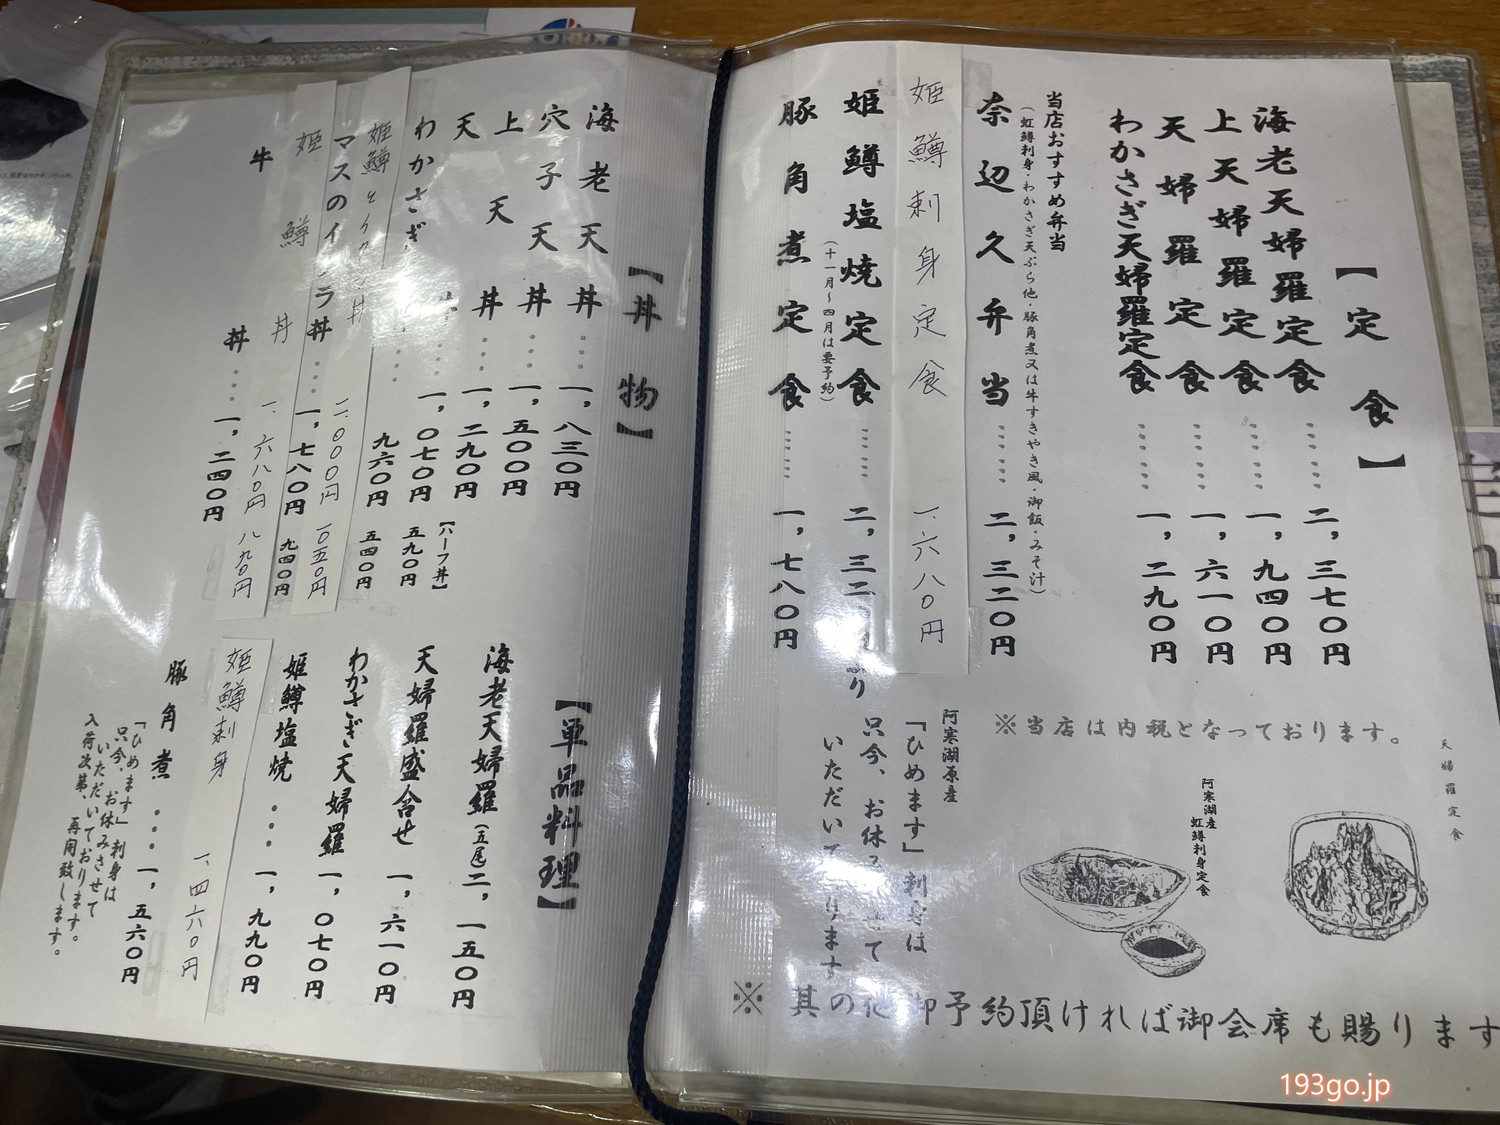 【定食】
海老天婦羅定食……二，三七〇円
上天婦羅定食……一，九四〇円
天婦羅定食……一，六一〇円
わかさぎ天婦羅定食……一，二九〇円
当店おすすめ弁当
（虹鱒刺身・わかさぎ天ぷら他・豚角煮又は牛すきやき風 御飯・みそ汁）
奈辺久弁当……二，三二〇円
姫鱒刺身定食 一、六八〇円
姫鱒塩焼定食……二，三二
（十一月～四月は要予約）
豚角煮定食……一，七八〇円
※当店は内税となっております。
天婦羅定食
阿寒湖産
虹鱒刺身定食
阿寒湖原産
「ひめます」刺身は
只今、お休み せて
いただいて ります
※其の他御予約頂ければ御会席も賜ります
【丼物】
海老天丼……一，八三〇円
穴子天丼……一，五〇〇円
上天丼……一，二九〇円
天丼……一，〇七〇円
【ハーフ丼】
五九〇円
わかさぎ 九六〇円 五四〇円
姫鱒とイクラ丼 二、〇〇〇円 一〇五〇円
マスのイクラ丼……一，七八〇円 九四〇円
姫鱒丼 一、六八〇円 八九〇円
牛丼……一，二四〇円
【単品料理】
海老天婦羅（五尾）二，一五〇円
天婦羅盛合せ 一，六一〇円
わかさぎ天婦羅 一，〇七〇円
姫鱒塩焼……一，九九〇円
姫鱒刺身 一、四六〇円
豚角煮……一，五六〇円
「ひめます」刺身は
只今、お休みさせて
いただいております。
入荷次第、再周致します。
193go.jp